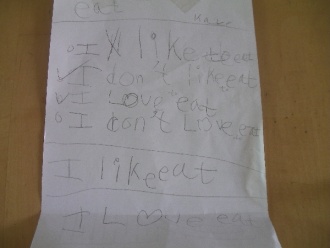 eat
I like to eat
I don't like eat
I Love eat
I don't Love eat
I like eat
I Love eat